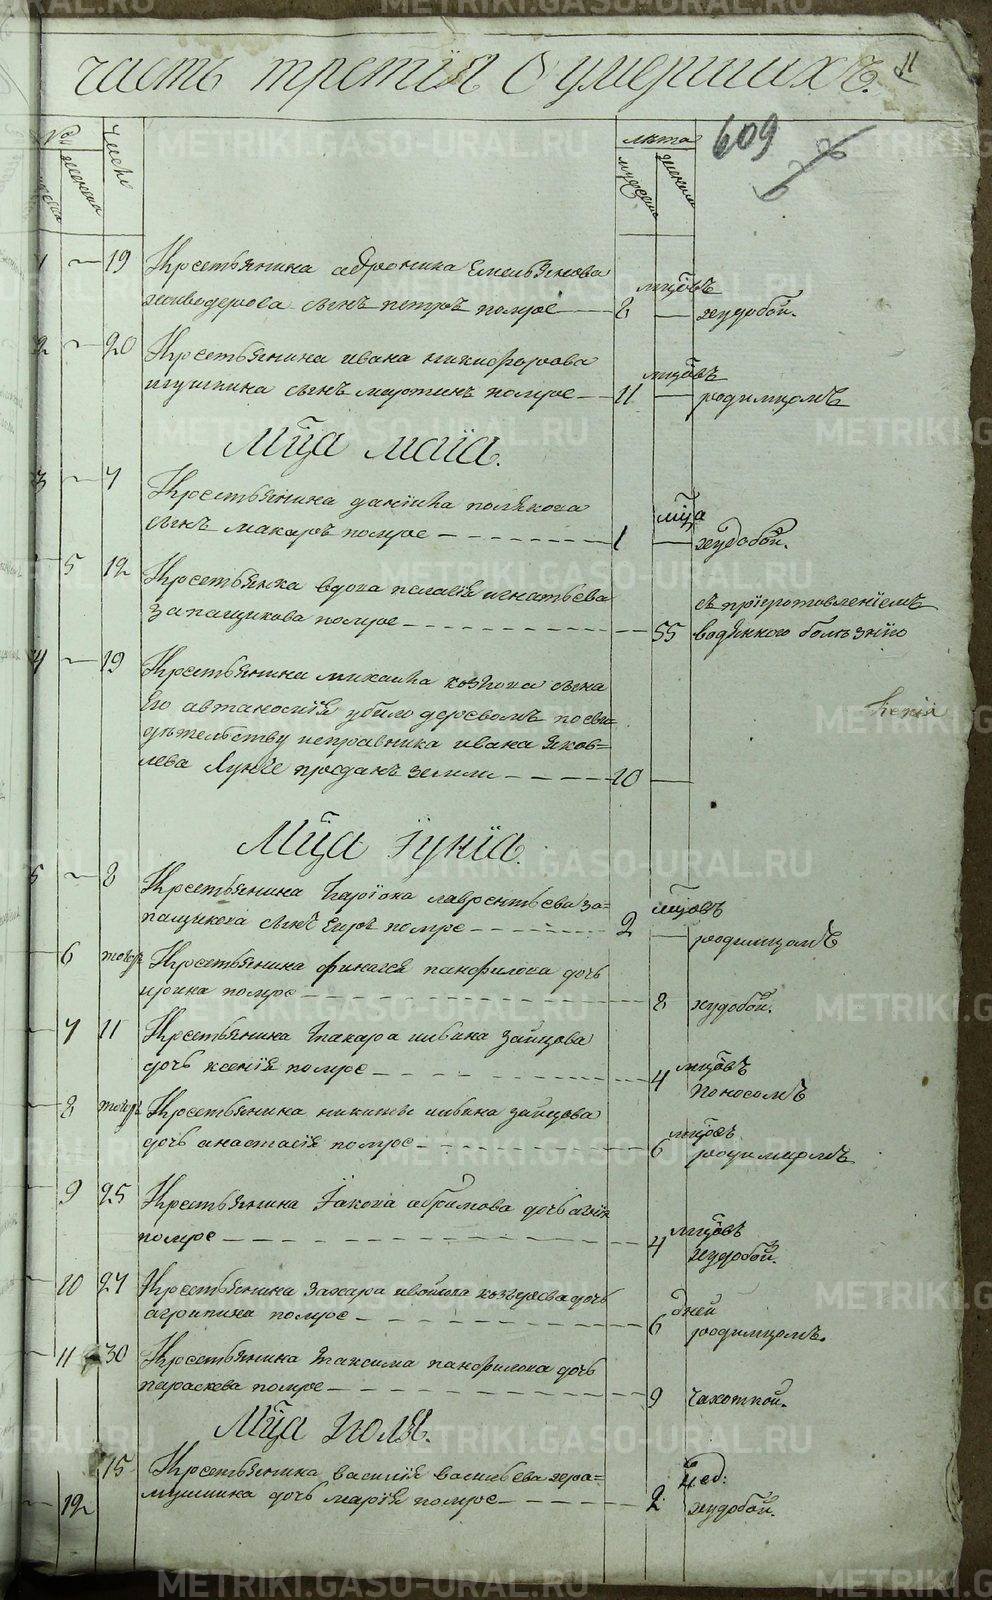 часть третїя о умершихъ.
11
609
№
Число
лѣта
женска
мужеска
женска
1 19 Крестьянина Андроника Емельянова
живодерова сынъ петръ помре 8 мцовъ худобой.
2 20 Крестьянина ивана никифорова
сынъ мартинъ помре 11 мцовъ родимцомъ
Мца маїа.
3 7 Крестьянина данїила полякова
сынъ макаръ помре 1 мца худобой.
5 12 Крестьянка вдова пелагїя игнатьева
запащикова помре 55 съ прїуготовленїемъ
водяною болѣзнїю
4 19 Крестьянина михаила козлова сына
его убило деревомъ по сви-
дѣтельству исправника ивана яков-
лева преданъ земли 10
Мца їунїа.
5 8 Крестьянина Ларїона лаврентьева за-
пащикова сынъ помре 2 мцовъ родимцомъ
6 тогож Крестьянина панфилова дочь
ирина помре 8 худобой.
7 11 Крестьянина Макара ильина зайцова
дочь ксенїя помре 4 мцовъ поносомъ
8 тогож Крестьянина никиты ильина зайцова
дочь анастасїя помре 6 мцовъ родимцомъ
9 25 Крестьянина Їакова абрамова дочь
помре 4 мцовъ худобой.
10 27 Крестьянина Захара дочь
агрипина помре 6 дней родимцомъ.
11 30 Крестьянина Максима панфилова дочь
параскева помре 9 чахоткой.
Мца їюля.
12 15 Крестьянина василїя васильева хра-
мушина дочь марїя помре 2 нед: худобой.